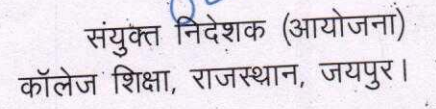 संयुक्त निदेशक (आयोजना)
कॉलेज शिक्षा, राजस्थान, जयपुर।